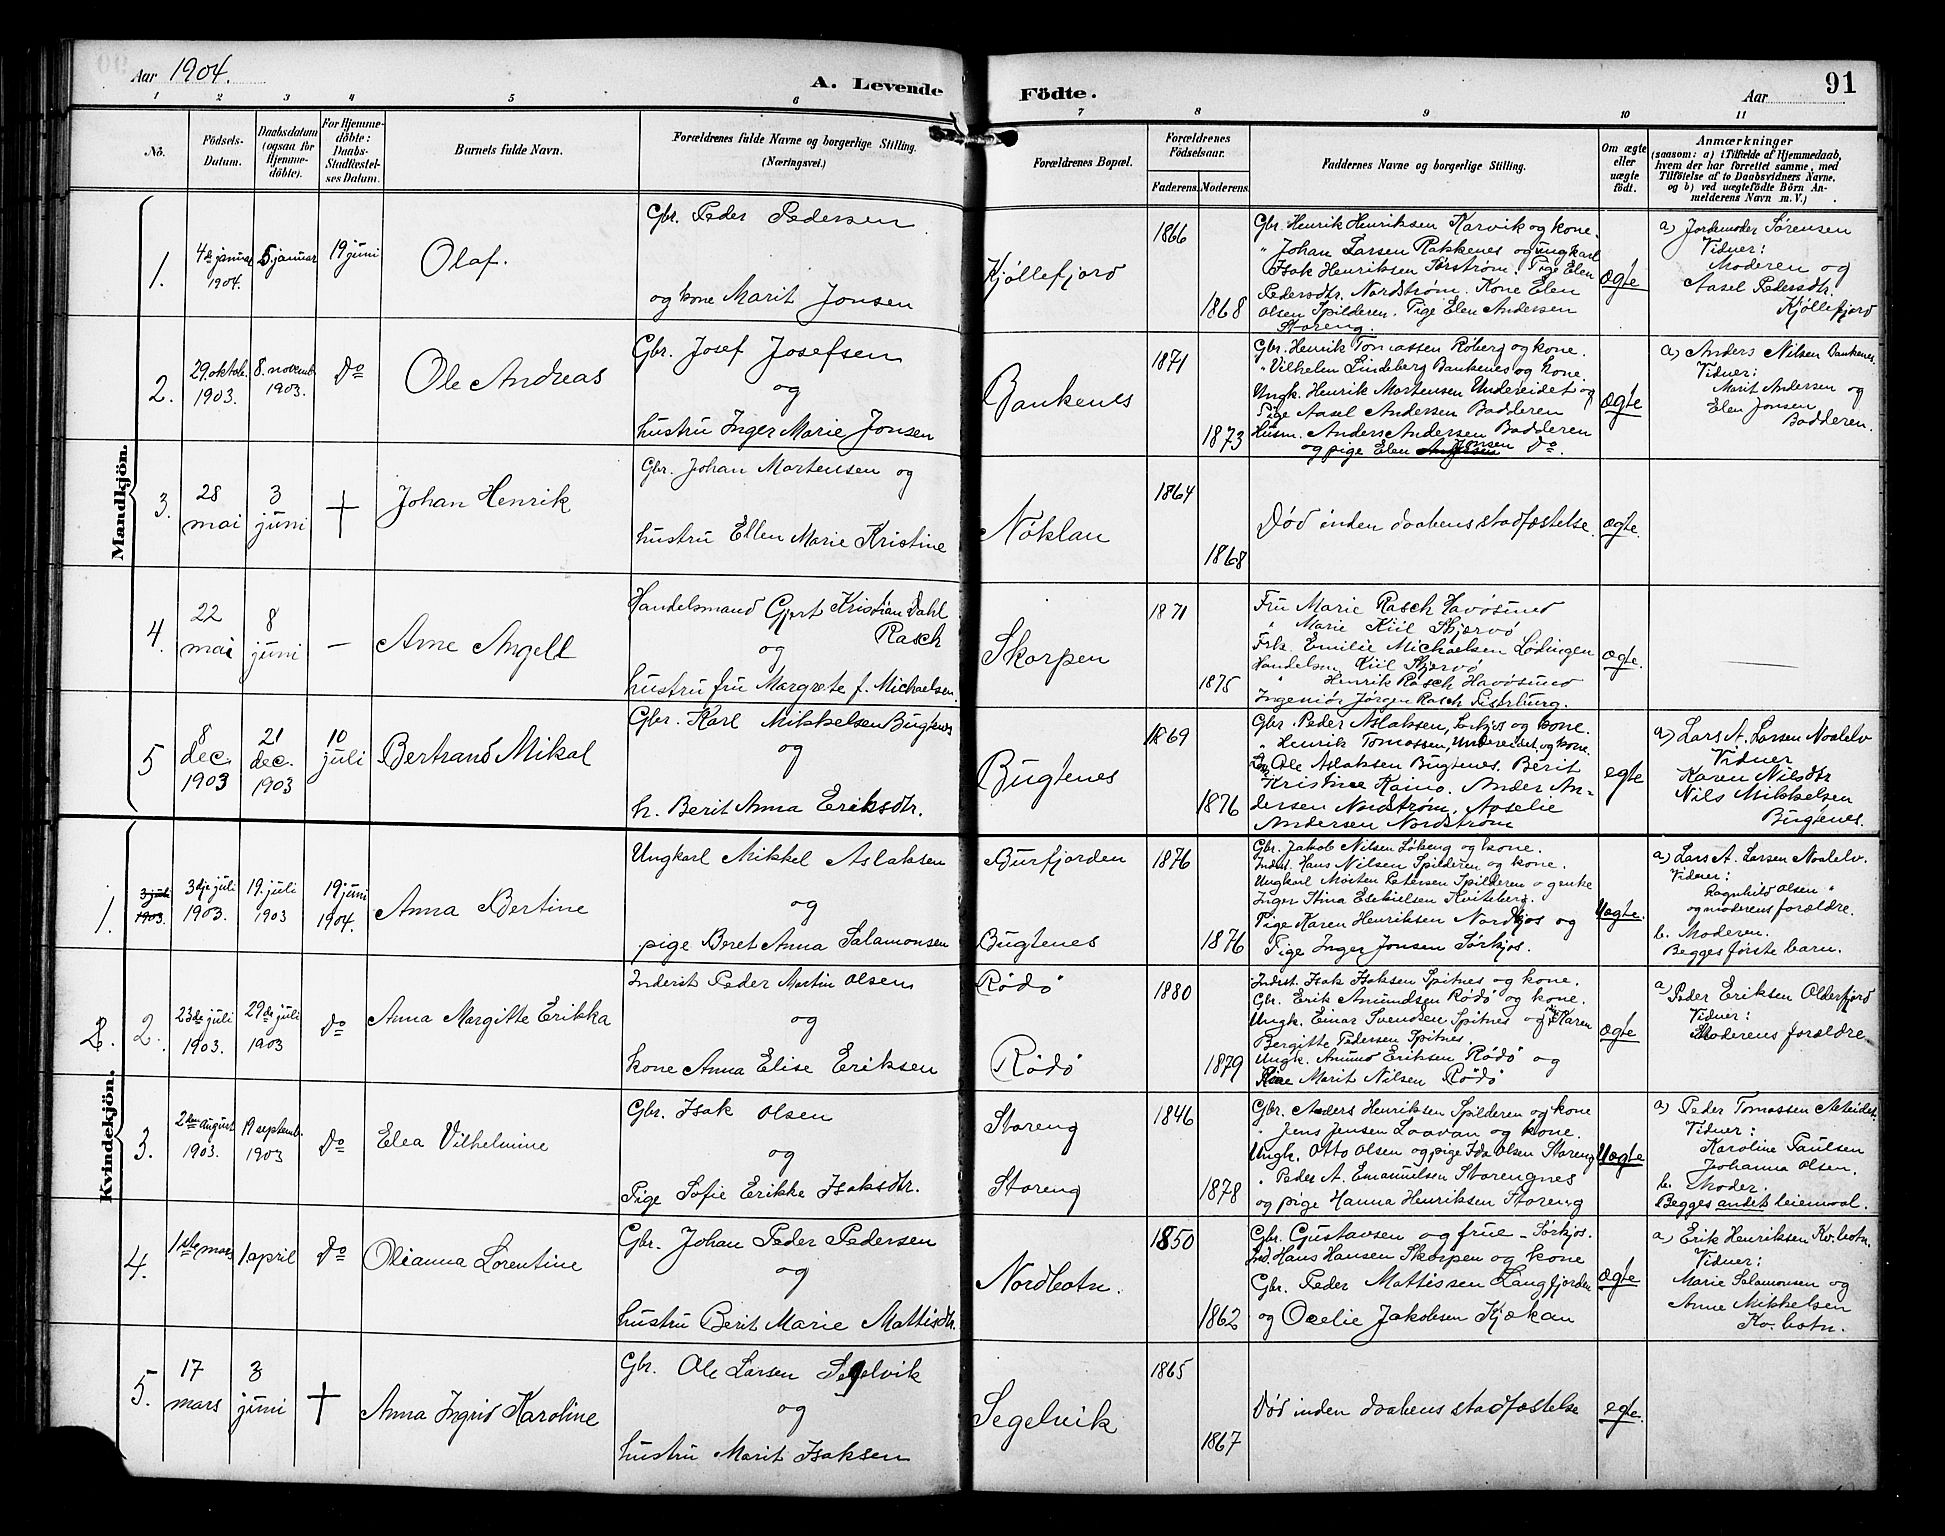 Aar 1904.
A. Levende Födte.
Aar
91
1 2 3 4 5 6 7 8 9 10 11
No.
Födsels-Datum.
Daabsdatum (ogsaa for Hjemme-döbte).
For Hjemme-döbte: Daabs-Stadfæstel-ses Datum.
Barnets fulde Navn.
Forældrenes fulde Navne og borgerlige Stilling. (Næringsvei.)
Forældrenes Bopæl.
Forældrenes Födselsaar.
Faderens. Moderens.
Faddernes Navne og borgerlige Stilling.
Om ægte eller uægte födt.
Anmærkninger
(saasom: a) i Tilfælde af Hjemmedaab,
hvem der har forrettet samme, med
Tilföielse af to Daabsvidners Navne,
og b) ved uægtefödte Börn An-
melderens Navn m. V.)
Mandkjön.
1.
4de januar 1904.
5 januar
19 juni
Olaf.
Gbr. Peder Pedersen
og kone Marit Jonsen
Kjøllefjord
1866
1868
Gbr. Henrik Henriksen Karvik og kone.
" Johan Larsen Rakkenes og ungkarl
Isak Henriksen Sørstrøm. Pige Elen
Pedersdtr. Nordstrøm. Kone Elen
Olsen Spilderen. Pige Elen Andersen
Storeng.
ægte
a) Jordemoder Sørensen
Vidner:
Moderen og
Aasel Pedersdtr.
Kjøllefjord
2.
29. oktob. 1903.
8. novemb. 1903.
Do
Ole Andreas
Gbr. Josef Josefsen
og
hustru Inger Marie Jonsen
Bankenes
1871
1873
Gbr. Henrik Tomassen Røberg og kone.
" Vilhelm Lindeberg Bankenes og kone
Ungk. Henrik Mortensen Undereidet og
Pige Aasel Andersen Badderen
Husm. Anders Andersen Badderen
og pige Elen Jonsen Do.
ægte
a) Anders Nilsen Bankenes.
Vidner:
Marit Andersen og
Elen Jonsen
Badderen.
3.
28 mai
3 juni
+
Johan Henrik
Gbr. Johan Mortensen og
hustru Ellen Marie Kristine
Nøklan
1864
1868
Død inden daabens stadfæstelse.
ægte.
4.
22 mai
8 juni
—
Arne Angell
Handelsmand Gjert Kristian Dahl
Rasch
og
hustru fru Margrete f. Michaelsen
Skorpen
1871
1875
Fru Marie Rasch Havøsund
" Marie Kiil Skjærvø
Frk. Emilie Michaelsen Lødingen
Handelsm. Kiil Skjærvø
" Henrik Rasch Havøsund
Ingeniør Jørgen Rasch
ægte.
5
8 dec. 1903
21 dec. 1903
10 juli
Bertrand Mikal
Gbr. Karl Mikkelsen Bugtenes
og
h. Berit Anna Eriksdtr.
Bugtenes
1869
1876
Gbr. Peder Aslaksen, Sørkjos og kone.
" Henrik Tomassen, Undereidet og kone.
Ole Aslaksen Bugtenes. Berit
Kristine Kaino. Ander An-
dersen Nordstrøm, Aaselie
Andersen Nordstrøm
egte
a) Lars A. Larsen Noalelv
Vidner
Karen Nilsdtr
Nils Mikkelsen
Bugtenes.
Kvindekjön.
1.
3 juli 1903.
3dje juli 1903.
19. juli 1903
19 juni 1904.
Anna Bertine
Ungkarl Mikkel Aslaksen
og
pige Beret Anna Salamonsen
Burfjorden
Bugtenes
1876
1876
Gbr. Jakob Nilsen Løkeng og kone.
Indst. Hans Nilsen Spilderen og kone.
Ungkarl Morten Petersen Spilderen og enke
Inger Stina Esekielsen Kviteberg.
Pige Karen Henriksen Nordkjos og
Pige Inger Jonsen Sørkjos.
Uægte.
a) Lars A. Larsen Noalelv.
Vidner:
Ragnhild Olsen "
og moderens forældre.
b. Moderen.
Begges første barn.
2.
2.
23de juli 1903.
29de juli 1903
Do
Anna Margitte Erikka
Inderst Peder Martin Olsen
og
kone Anna Elise Eriksen
Rødø
Rødø
1880
1879
Indst. Isak Isaksen Spitnes og kone.
Gbr. Erik Amundsen Rødø og kone.
Ungk. Einar Svendsen Spitnes og Karen
Bergitte Pedersen Spitnes.
Ungk. Amund Eriksen Rødø og
Marit Nilsen Rødø
ægte
a) Peder Eriksen Olderfjord
Vidner:
Moderens forældre
3.
2den august 1903.
19 septemb. 1903
Do
Elea Vilhelmine
Gbr. Isak Olsen
og
Pige Sofie Erikke Isaksdtr.
Storeng
Storeng
1846
1878
Gbr. Anders Henriksen Spilderen og kone
" Jens Jensen Laavan og kone.
Ungk. Otto Olsen og pige Ida Olsen Storeng
" Peder A. Emanuelsen Storengnes
og pige Hanna Henriksen Storeng
Uægte
a) Peder Tomassen
Vidner:
Karoline Paulsen
Johanna Olsen.
b. Moder.
Begges andet leiermaal.
4.
1ste mars
1. april
Do
Olianna Lorentine
Gbr. Johan Peder Pedersen
og
hustru Berit Marie Mattisdtr.
Nordbotn.
1850
1862
Gbr. Gustavsen og frue - Sørkjos.
Ind. Hans Hansen Skorpen og kone
Gbr. Peder Mattissen Langfjorden
og Ocelie Jakobsen Kjækan
ægte
a) Erik Henriksen Kv. botn.
Vidner:
Marie Salamonsen og
Anne Mikkelsen
Kv. botn.
5.
17 mars
3 juni
+
Anna Ingrid Karoline
Gbr. Ole Larsen Segelvik
og
hustru Marit Isaksen
Segelvik
1865
1867
Død inden daabens stadfæstelse
egte.